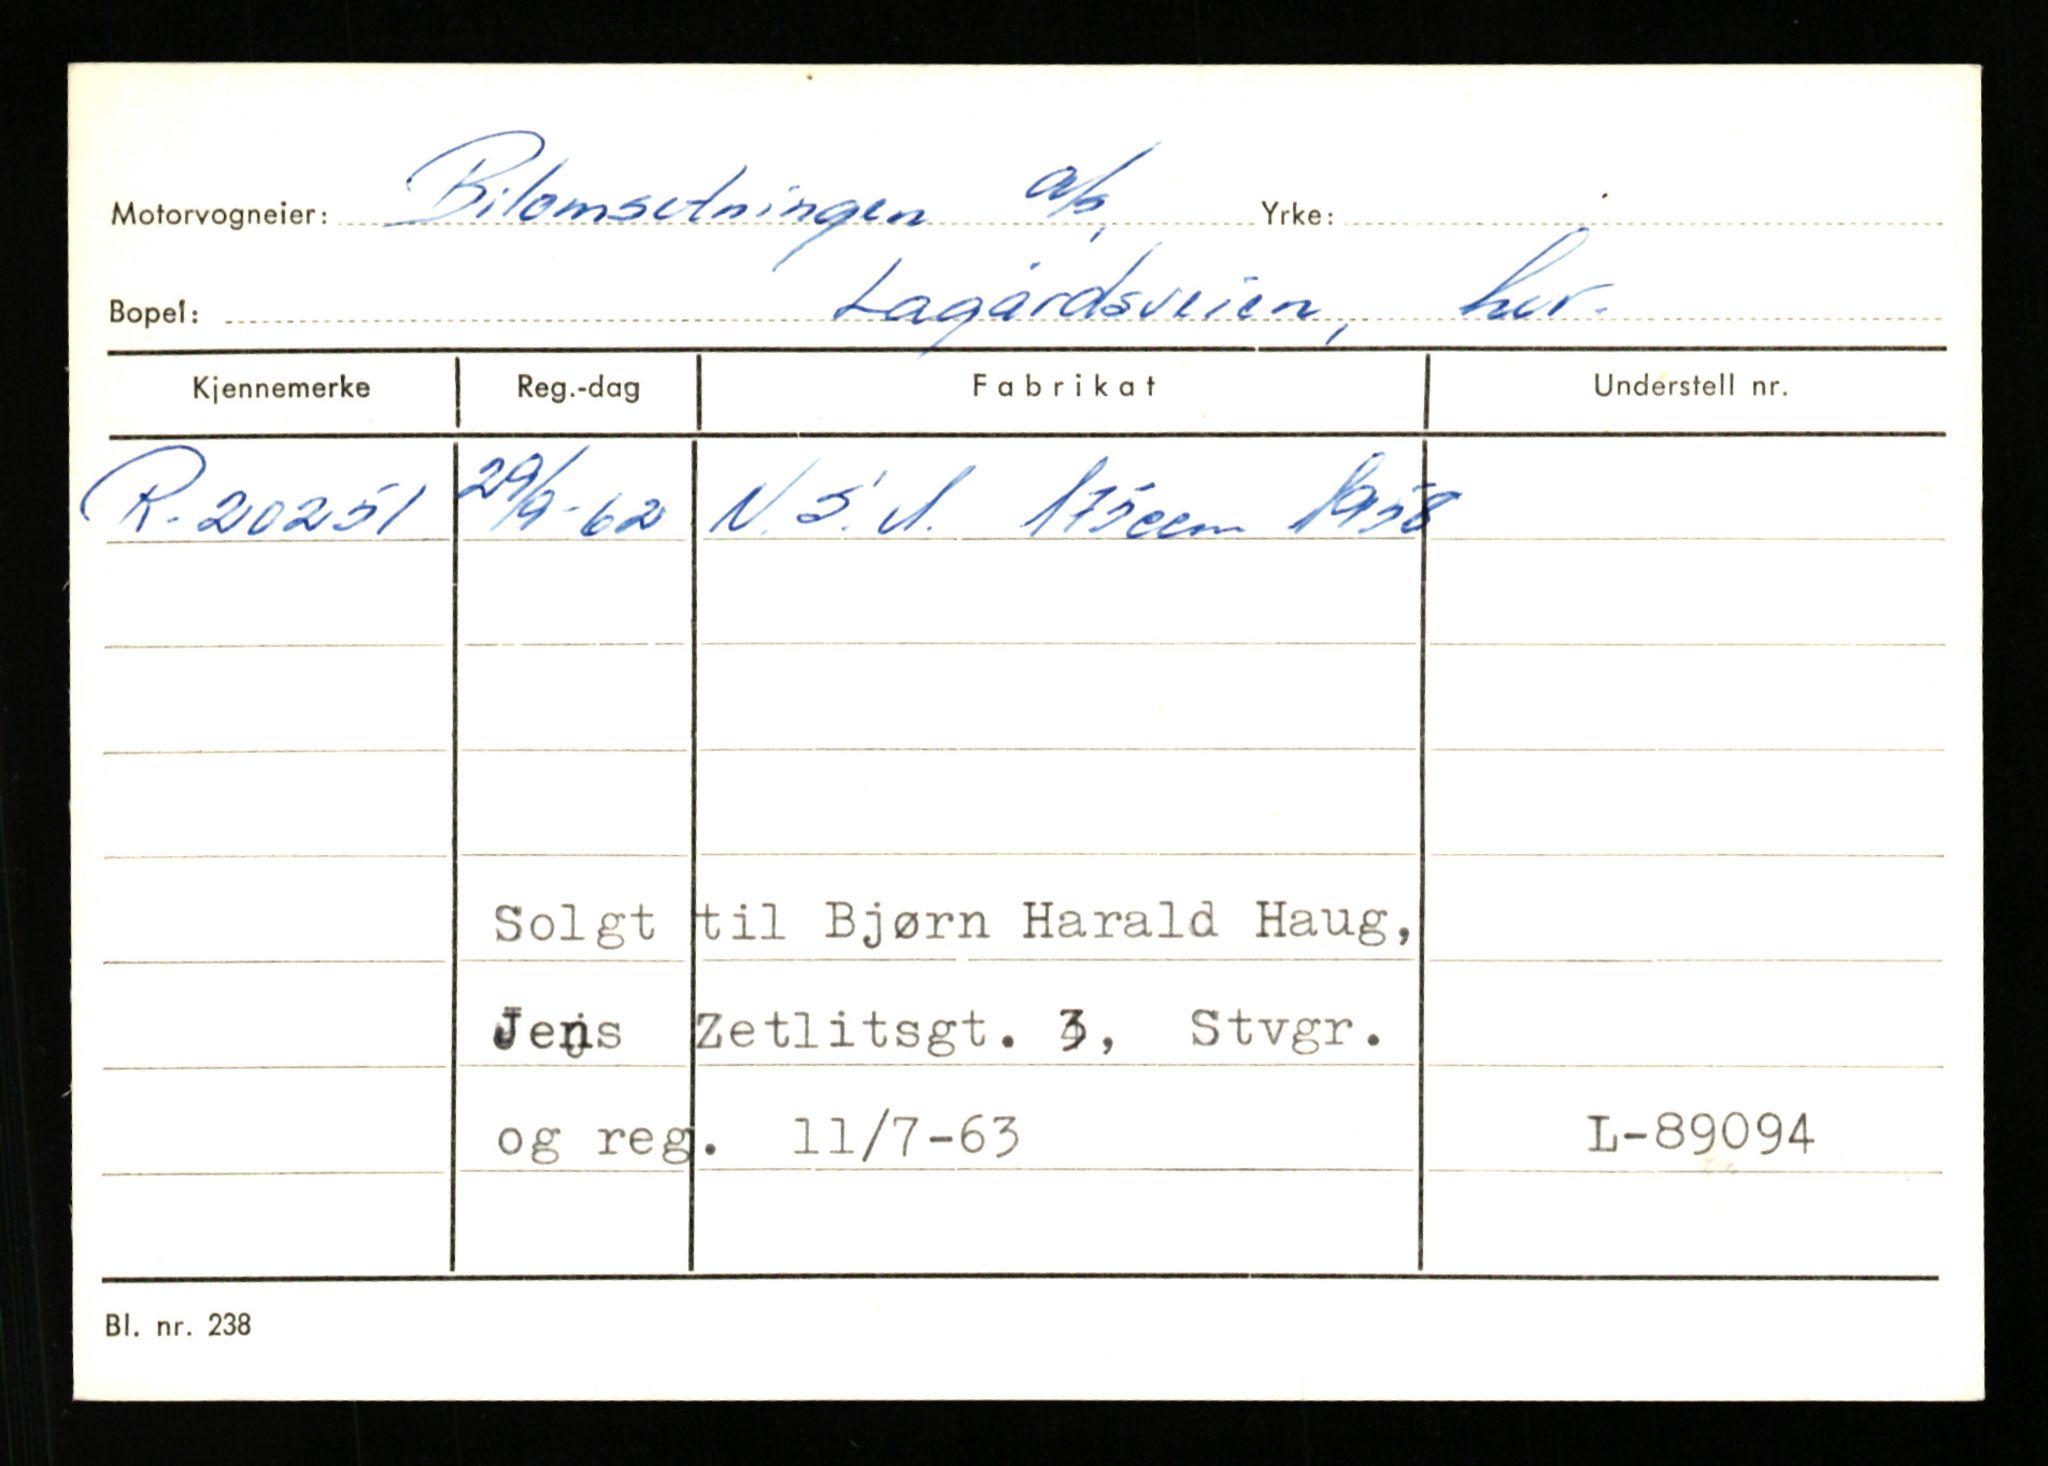 Motorvogneier: Bilomsetningen a/s, Yrke:
Bopel: Lagårdsveien, her.
Kjennemerke Reg.-dag Fabrikat Understell nr.
R-20251 29/9-62 N.S.U. 175ccm 1958
Solgt til Bjørn Harald Haug,
Jens Zetlitsgt. 3, Stvgr.
og reg. 11/7-63 L-89094
Bl. nr. 238